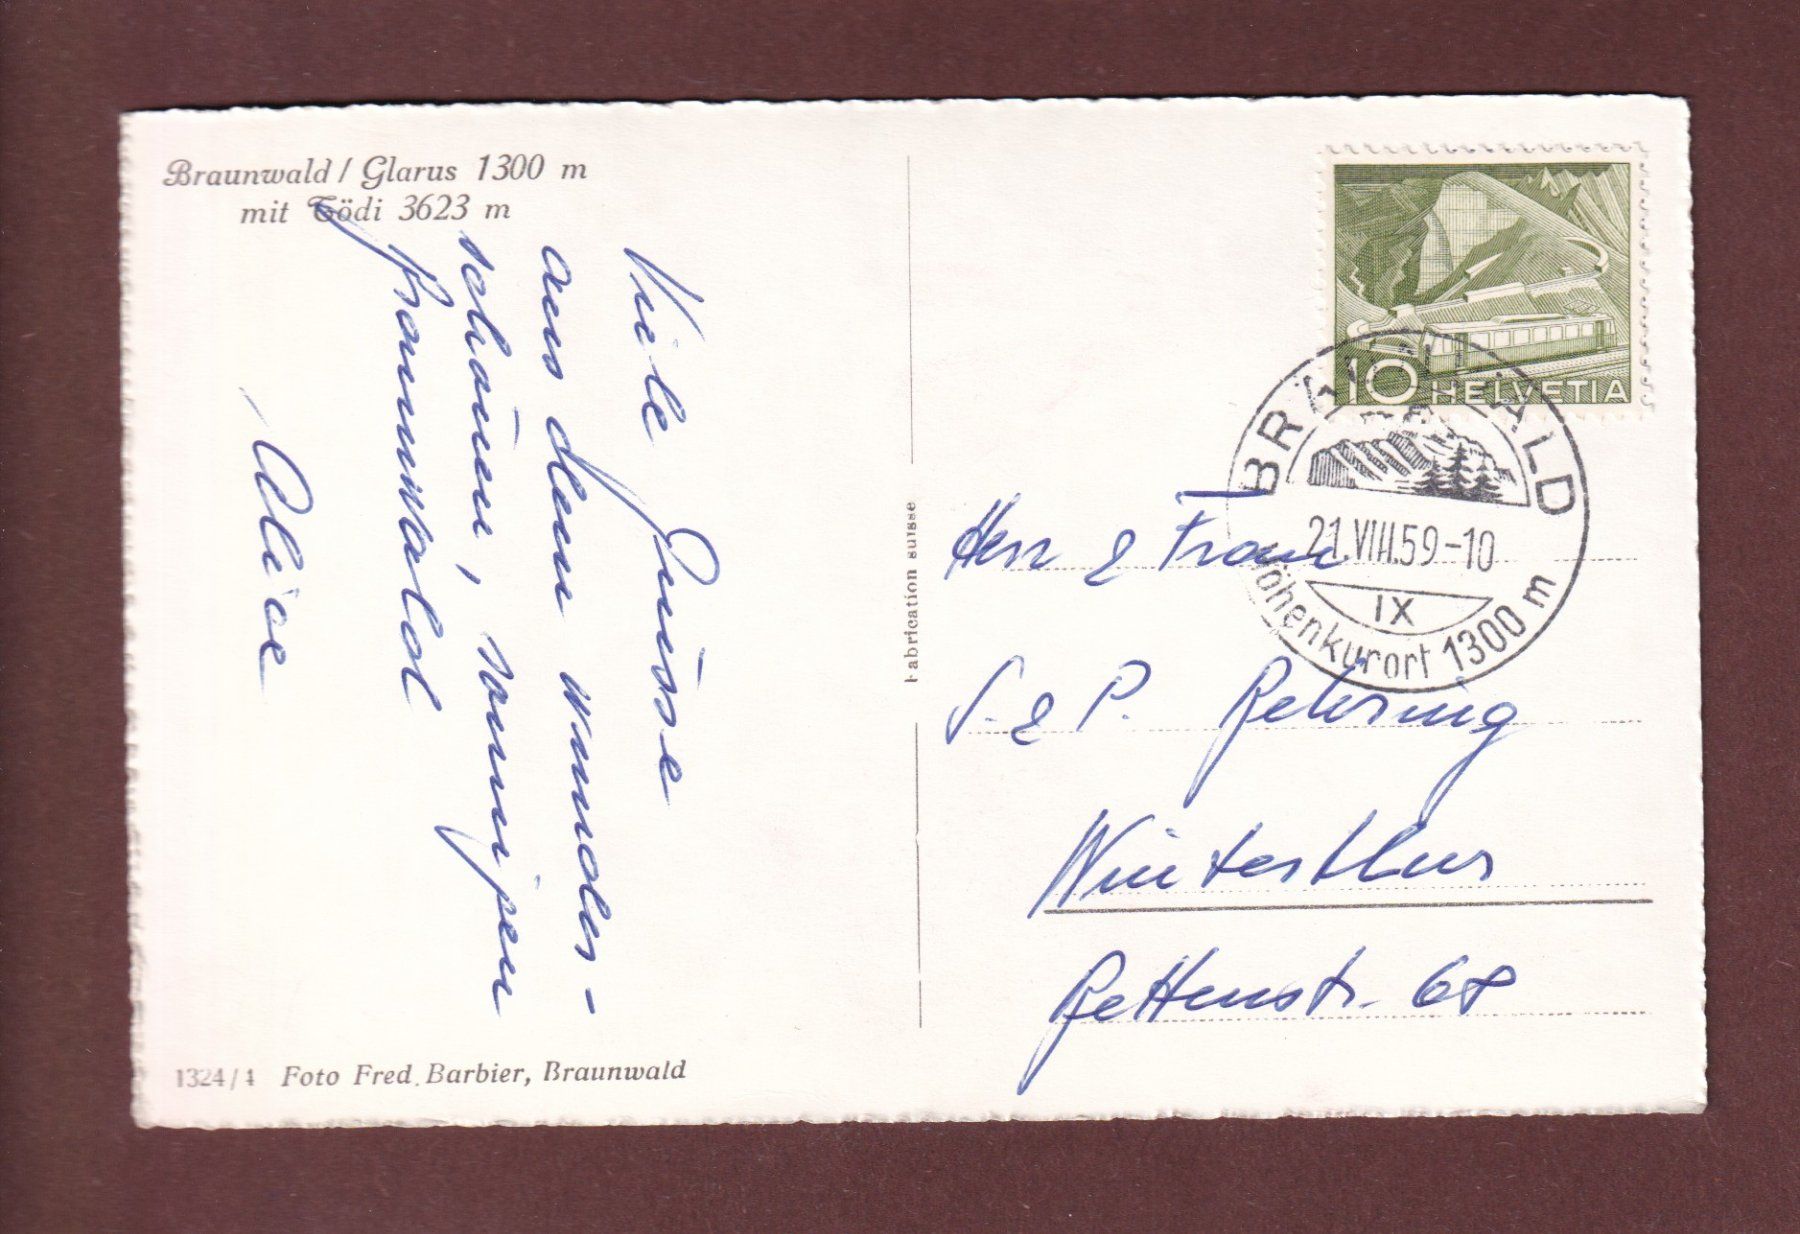 Braunwald / Glarus 1300 m
mit Tödi 3623 m
Viele Grüsse
aus dem wunder-
schönen, sonnigen
Braunwald
Alice
1324/4 Foto Fred. Barbier, Braunwald
Fabrication suisse
10 HELVETIA
BRAUNWALD
21.VIII.59-10
IX
Höhenkurort 1300 m
Herr & Frau
S. & P. Behring
Winterthur
68